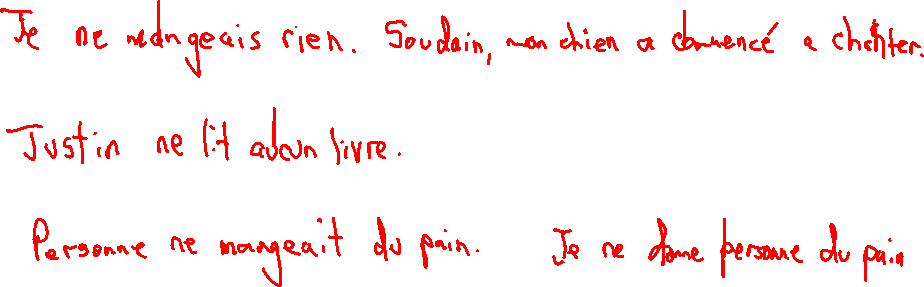 Je ne mangeais rien. Soudain, mon chien a commencé a chanter.
Justin ne lit aucun livre.
Personne ne mangeait du pain. Je ne donne personne du pain